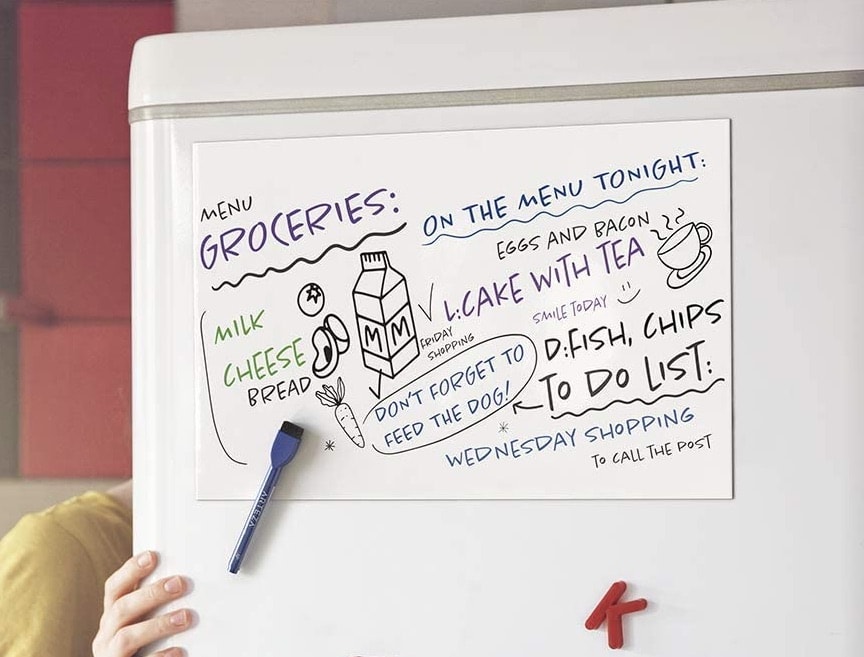 MENU
GROCERIES:
MILK
CHEESE
BREAD
MM
FRIDAY
SHOPPING
DON'T FORGET TO
FEED THE DOG!
ON THE MENU TONIGHT:
EGGS AND BACON
L:CAKE WITH TEA
SMILE TODAY
D:FISH, CHIPS
TO DO LIST:
WEDNESDAY SHOPPING
TO CALL THE POST
ARTEZA
K